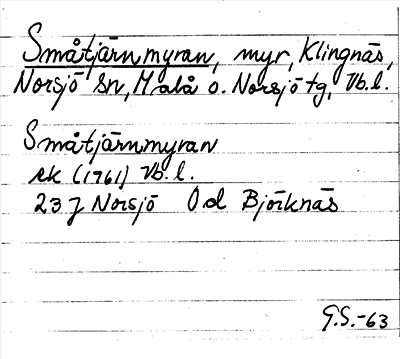 Småtjärnmyran, myr, Klingnäs,
Norsjö sn, Malå o. Norsjö tg, Vb.l.
Småtjärnmyran
ek (1961) Vb.l.
23 J Norsjö Od Björknäs
G.S.-63